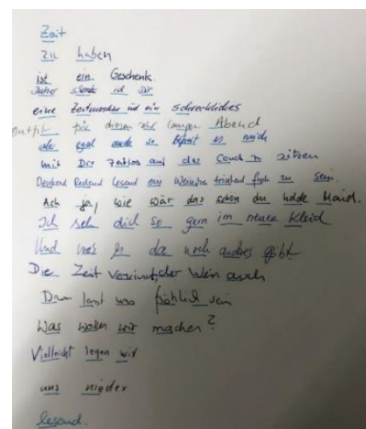 Zeit
zu haben
ist ein Geschenk.
ich dir
eine und ein schreckliches
Outfit für diesen sehr langen Abend
aber egal so mich
mit Dir auf der Couch zu sitzen
Denkend Redend Lesend ein trinkend zu sein.
Ach ja, wie wär das schön du holde Maid.
Ich seh dich so gern im neuen Kleid
Und was es da noch andres gibt
Die Zeit verrinnt, der Wein auch
Drum lasst uns fröhlich sein
Was wollen wir machen?
Vielleicht legen wir
uns nieder
lesend.